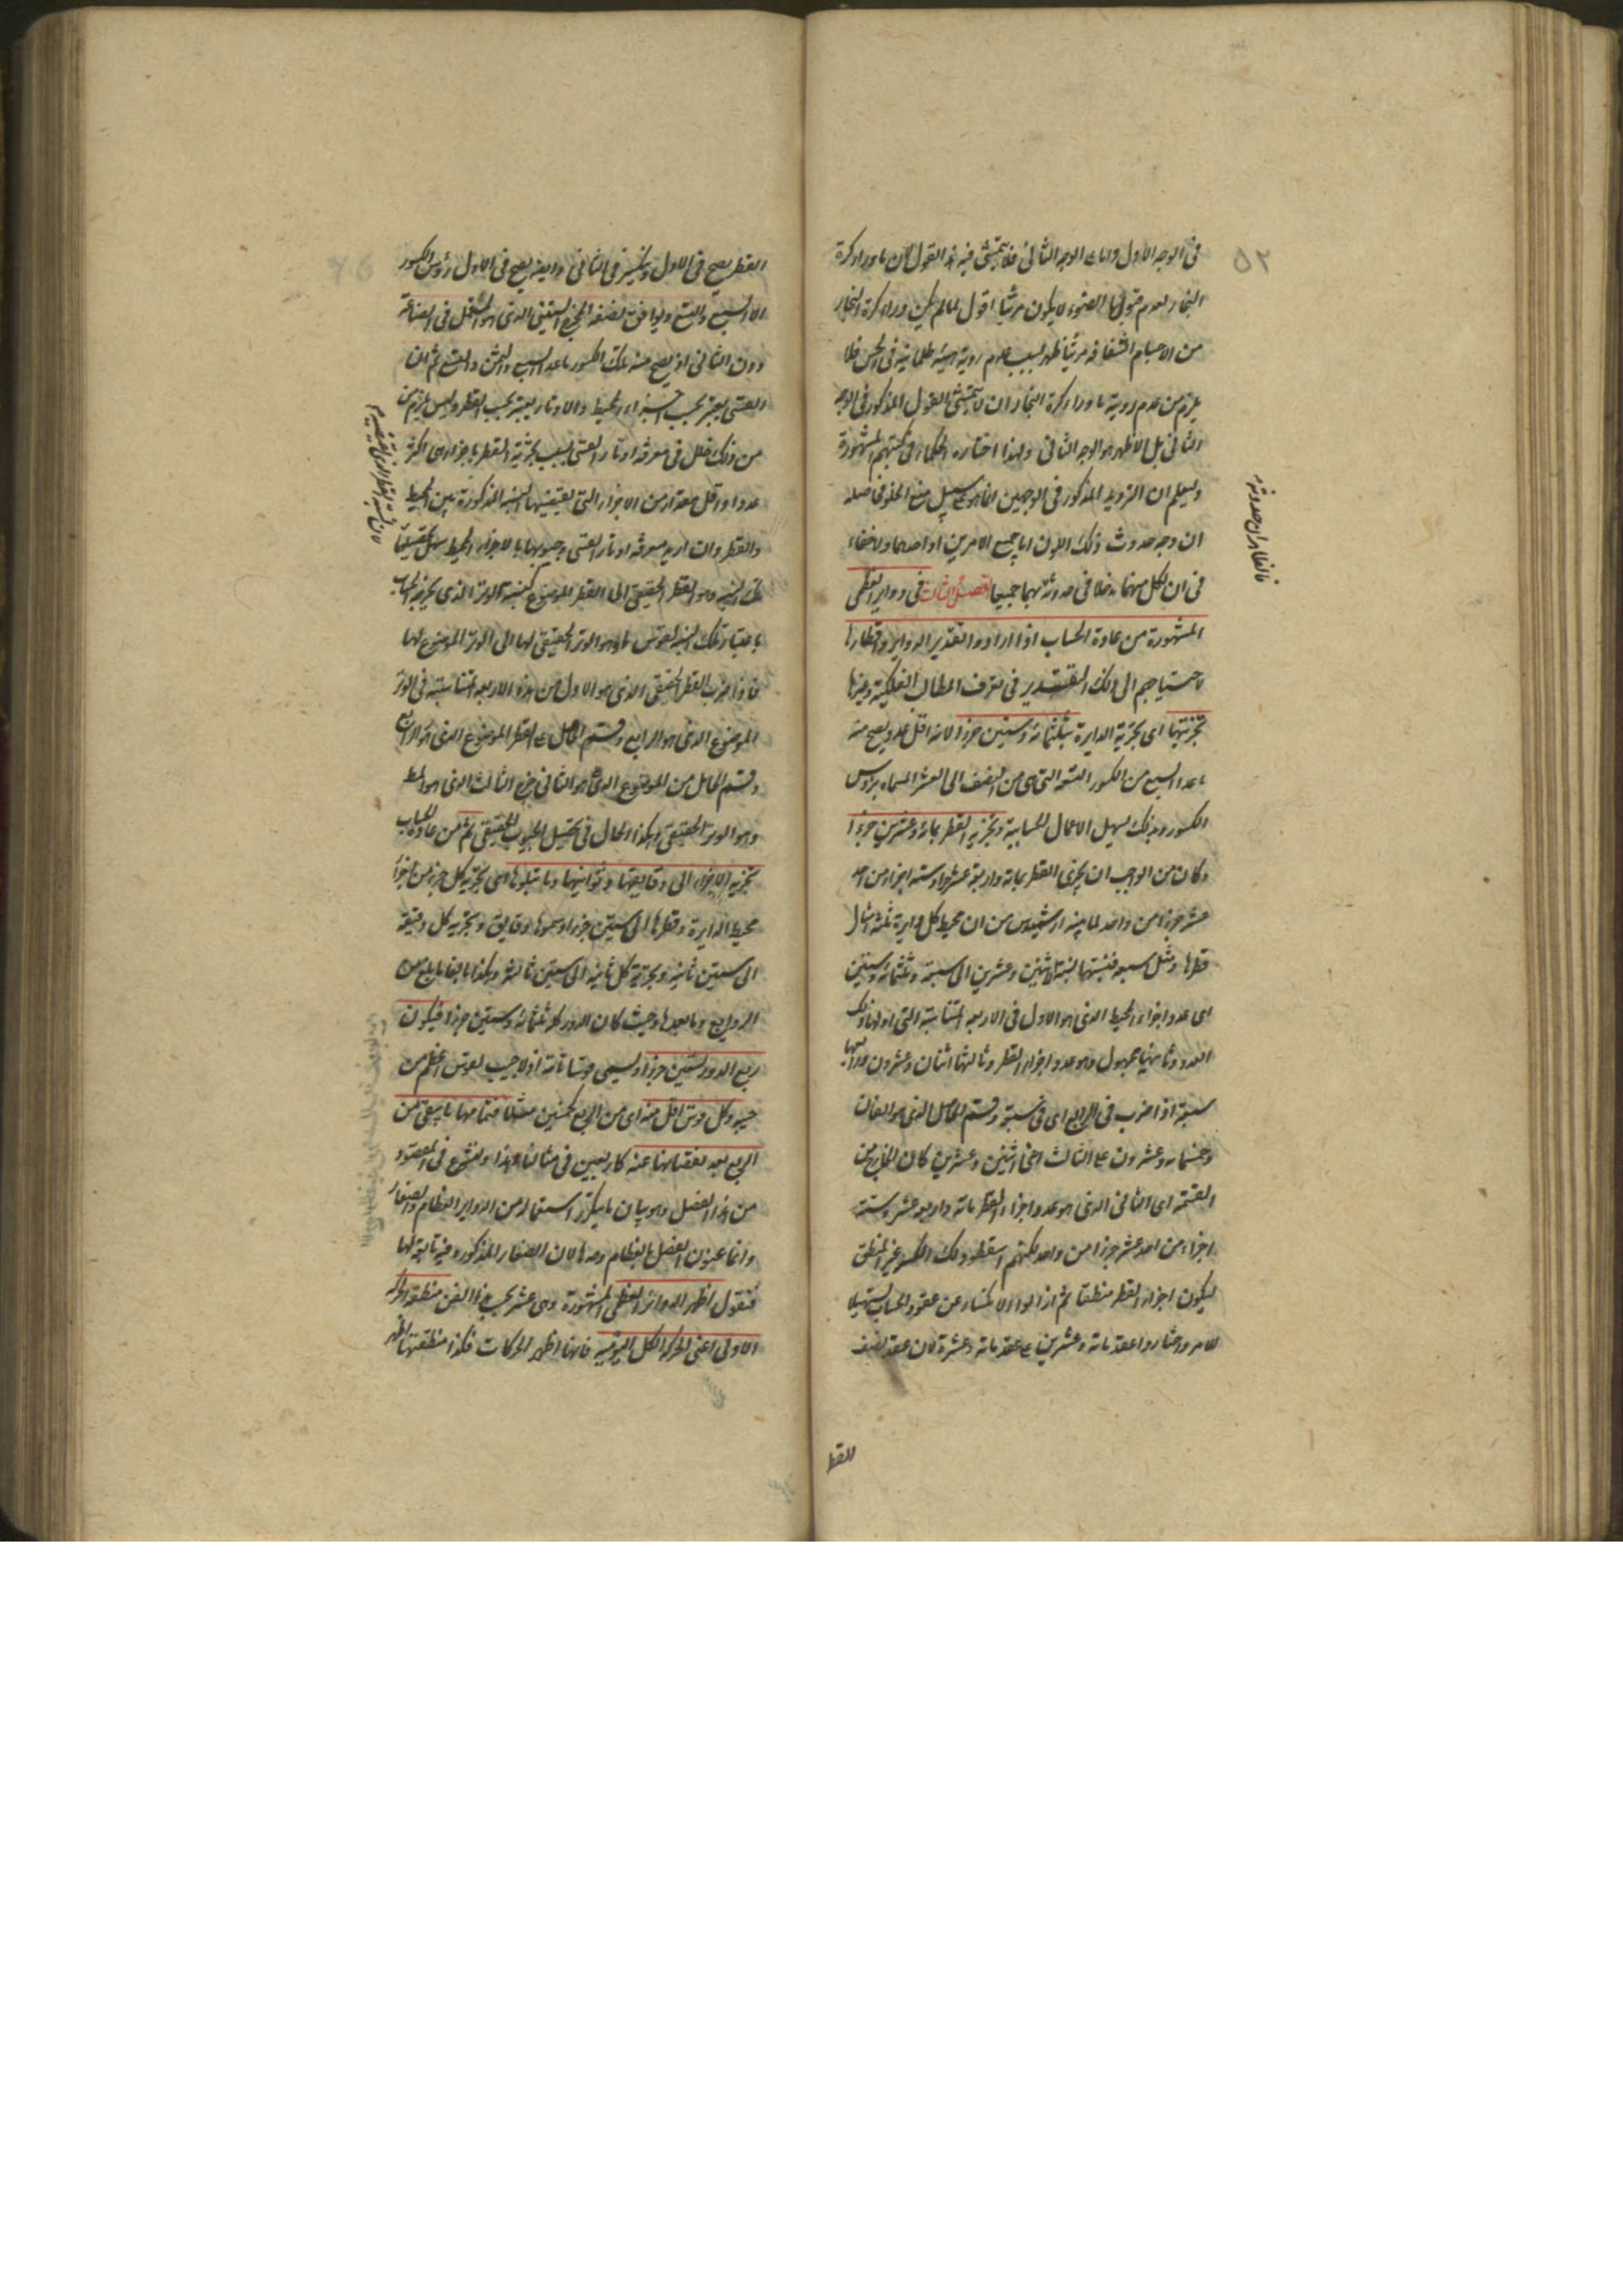 فى الوجه الاول واما على الوجه الثانى فلا يتمشى فيه هذا القول لان ما وراء كرة
البخار لعدم قبولها الضوء لا يكون مرئيا اقول لما لم يكن وراء كرة البخار
من الاجسام الشفافة مرئيا ظهر بسبب عدم رويته هيئة ظلمانية فى الحس فلا
يلزم من عدم روية ما وراء كرة البخار ان لا يتمشى القول المذكور فى الوجه
الثانى بل الاظهر هو الوجه الثانى ولهذا اختاره الحكماء فى كتبهم المشهورة
وليعلم ان الترديد المذكور فى الوجهين انما هو على سبيل منع الخلو فحاصله
ان وجه حدوث ذلك اللون اما جميع الامرين او احدهما ولا خفاء
فى ان لكل منهما مدخلا فى حدوثه بهما جميعا الفصل الثالث فى دواير العظمى
المشهورة من عادة الحساب اذا ارادوا تقدير الدواير واقطارها
لاحتياجهم الى ذلك التقدير فى تعرف المطالب الفلكية وغيرها
تجزيتها اى تجزية الدايرة بثلثمائة وستين جزءا لانه اقل عدد يصح منه
ما عدا السبع من الكسور التسعة التى هى من النصف الى العشر المسماة برؤس
الكسور وبذلك يسهل الاعمال الحسابية وتجزية القطر بمائة وعشرين جزءا
وكان من الواجب ان يجزى القطر بمائة واربعة عشر جزءا وستة اجزاء من احد
عشر جزءا من واحد لما بينه ارشميدس من ان محيط كل دايرة ثلثة امثال
قطرها ومثل سبعه فنسبتها نسبة الاثنين وعشرين الى سبعة وثلثمائة وستين
اى عدد اجزاء المحيط الذى هو الاول فى الاربعة المتناسبة التى اولها ذلك
العدد وثانيها مجهول وهو عدد اجزاء القطر وثالثها اثنان وعشرون ورابعها
سبعة اذا ضرب فى الرابع اى فى سبعة وقسم الحاصل الذى هو الفان
وخمسمائة وعشرون على الثالث اعنى اثنين وعشرين كان الخارج من
القسمة اى الثانى الذى هو عدد اجزاء القطر مائة واربعة عشر وستة
اجزاء من احد عشر جزءا من واحد لكنهم اسقطوا ذلك الكسر غير المنطق
ليكون اجزاء القطر منطقا ثم ازالوا الانكسار عن عقود الحساب تسهيلا
للامر واختاروا عقد مائة وعشرين على عقد مائة وعشرة لان عقد نصف
القط
فالظاهر ان حدوثه
۵۲
القطر يصح فى الاول وينكسر فى الثانى وايضا يصح فى الاول رؤس الكسور
الا السبع والتسع ويوافق نصفه المخرج الستينى الذى هو المستعمل فى الصناعة
دون الثانى اذ يصح منه تلك الكسور ما عدا السبع والثمن والتسع ثم ان
القسى يعتبر بحسب اجزاء المحيط والاوتار يعتبر بحسب القطر وليس يلزم من
من ذلك خلل فى معرفة اوتار القسى بسبب تجزية القطر باجزاء هى اكثر
عددا واقل مقدارا من الاجزاء التى يقتضيها النسبة المذكورة بين المحيط
والقطر وان اريد معرفة اوتار القسى وجيوبها بالاجزاء المحيط سهل تحصيلها
تلك النسبة وهو القطر الحقيقى الى القطر الموضوع كنسبة الوتر الذى يخرجه الحساب
باعتبار تلك النسبة لقوس ما وهو الوتر الحقيقى لها الى الوتر الموضوع لها
فاذا ضرب القطر الحقيقى الذى هو الاول من هذه الاربعة المتناسبة فى الوتر
الموضوع الذى هو الرابع وقسم الحاصل على القطر الموضوع الذى هو الثانى
وقسم الحاصل من الموضوع الذى هو الثانى خرج الثالث الذى هو الوسط
وهو الوتر الحقيقى وهكذا الحال فى تحصيل الجيوب الحقيقى ثم من عادة الحساب
تجزية الاجزاء الى دقايقها وثوانيها وما يتلوها اى تجزية كل جزء من اجزاء
محيط الدايرة وقطرها الى ستين جزءا وسموها دقايق وتجزية كل دقيقة
الى ستين ثانية وتجزية كل ثانية الى ستين ثالثة وهكذا بالغا ما بلغ من
الروابع وما بعدها وحيث كان الدور كله ثلثمائة وستين جزءا فيكون
ربع الدور تسعين جزءا ويسمى قوسا تامة اذ لا جيب لقوس اعظم من
جيبه وكل قوس اقل منه اى من الربع كخمسين مثلا فتمامها ما يبقى من
الربع بعد نقصانها عنه كاربعين فى مثالنا هذا ولنشرع فى المقصود
من هذا الفصل وهو بيان ما يكثر استعماله من الدواير العظام والصغار
وانما عنون الفصل بالعظام وحدها لان الصغار المذكورة فيه تابعة لها
فنقول اظهر الدوائر العظمى المشهورة وهى عشر بحسب هذا الفن منطقة الحركة
الاولى اعنى الحركة الكل اليومية فانها اظهر الحركات فكذا منطقتها اظهر